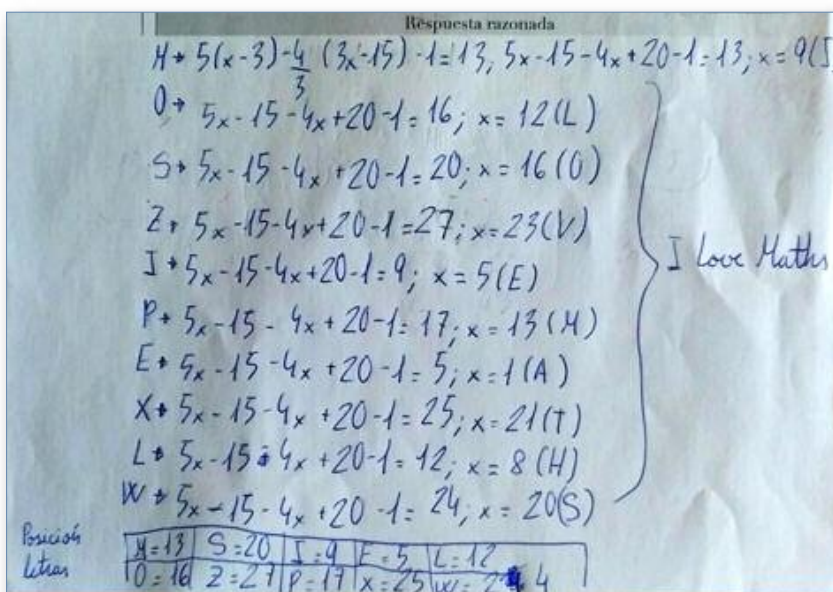 Respuesta razonada
M→ 5(x-3)-4/3 (3x-15)-1=13, 5x-15-4x+20-1=13; x=9(I
O→ 5x-15-4x+20-1=16; x=12(L)
S→ 5x-15-4x+20-1=20; x=16(O)
Z→ 5x-15-4x+20-1=27; x=23(V)
I→ 5x-15-4x+20-1=9; x=5(E)
P→ 5x-15-4x+20-1=17; x=13(M)
E→ 5x-15-4x+20-1=5; x=1(A)
X→ 5x-15-4x+20-1=25; x=21(T)
L→ 5x-15-4x+20-1=12; x=8(H)
W→ 5x-15-4x+20-1=24; x=20(S)
I Love Maths
Posición letras
M=13 S=20 I=9 E=5 L=12
O=16 Z=27 P=17 X=25 W=24